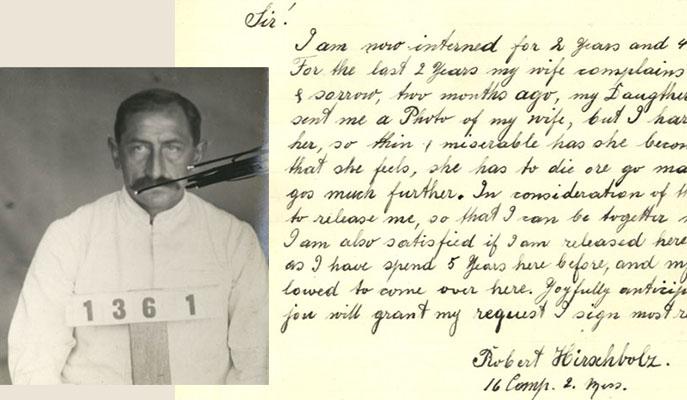 Sir!
I am now interned for 2 Years and 4
For the last 2 Years my wife complains
& sorrow, two months ago, my Daugther
sent me a Photo of my wife, but I har
her, so thin & miserable has she becom
that she feels, she has to die ore go ma
gos much further. In consideration of th
to release me, so that I can be togetther
I am also satisfied if I am released here
as I have spend 5 Years here before, and my
lowed to come over here. Joyfully anticip
jou will grant my request I sign most re
Robert Hirschbolz.
16 Comp. 2. Mess.
1361